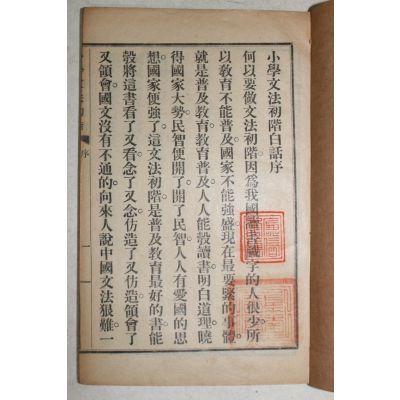 小學文法初階白話序
何以要做文法初階。因爲我國讀書識字的人很少。所
以教育不能普及。國家不能強盛。現在最要緊的事體。
就是普及教育。教育普及。人人能彀讀書明白道理。曉
得國家大勢。民智便開了。開了民智。人人有愛國的思
想。國家便強了。這文法初階。是普及教育最好的書。能
彀將這書看了又看。念了又念。仿造了又仿造。領會了
又領會。國文沒有不通的。向來人說中國文法狠難。一
序